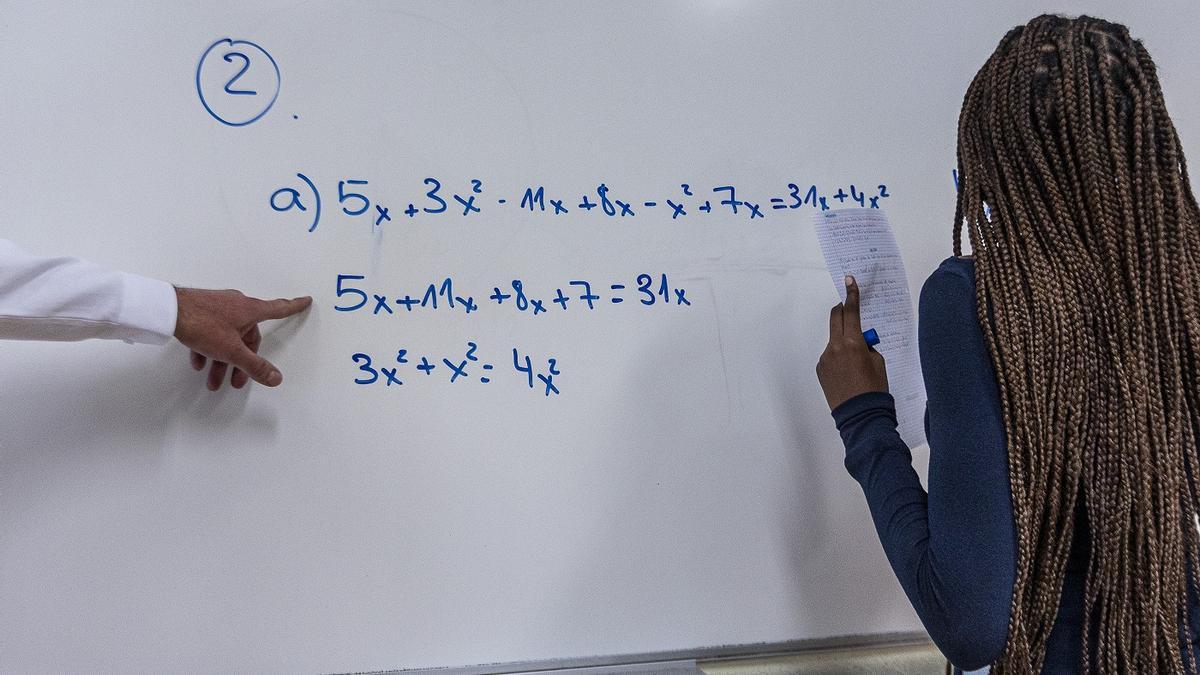 2.
a) 5x + 3x² - 11x + 8x - x² + 7x = 31x + 4x²
5x + 11x + 8x + 7 = 31x
3x² + x² = 4x²